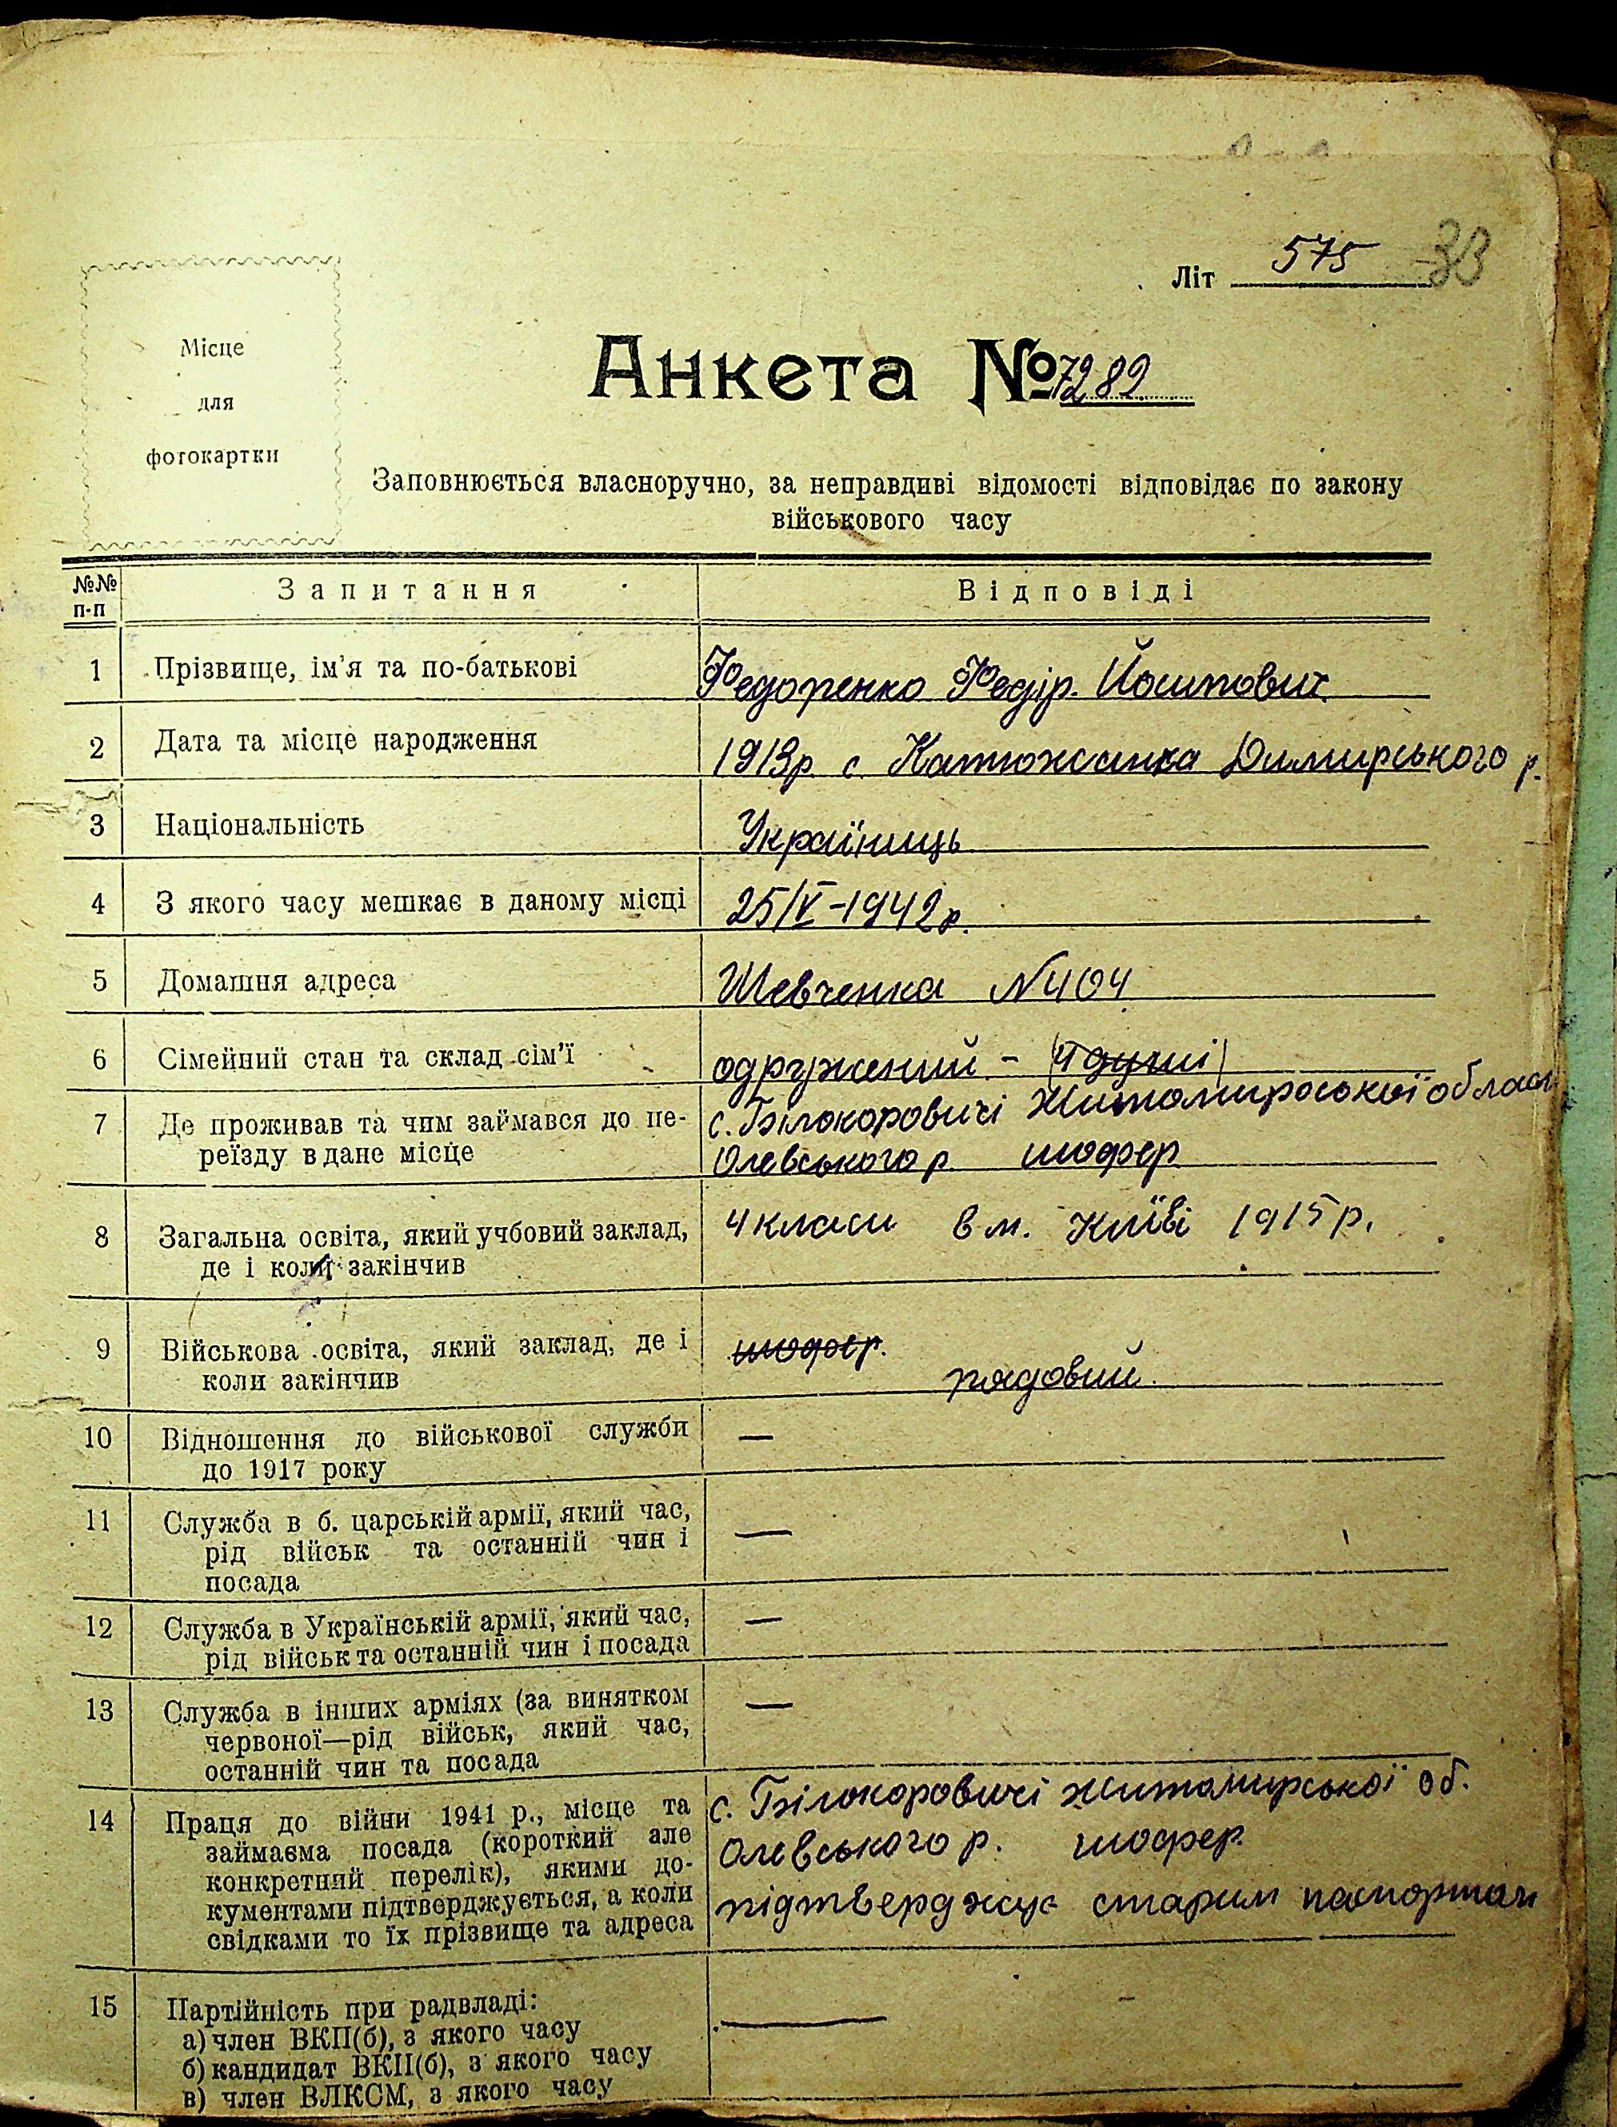 Літ 575 33
Місце
для
фотокартки
Анкета № 7282
Заповнюється власноручно, за неправдиві відомості відповідає по закону
військового часу
№№
п-п
Запитання
Відповіді
1 Прізвище, ім'я та по-батькові Федоренко Федір. Йосипович
2 Дата та місце народження 1913р с. Катюжанка Димирського р.
3 Національність Україниць
4 З якого часу мешкає в даному місці 25/V-1942р.
5 Домашня адреса Шевченка N 404
6 Сімейний стан та склад сім'ї одружений - (4 душі)
7 Де проживав та чим займався до пе- с. Білокоровичі Житомироської област
реїзду в дане місце Олевського р шофер
8 Загальна освіта, який учбовий заклад, 4 класи в м. Київі 1915р.
де і коли закінчив
9 Військова освіта, який заклад, де і шофер.
коли закінчив рядовий.
10 Відношення до військової служби —
до 1917 року
11 Служба в б. царській армії, який час, —
рід військ та останній чин і
посада
12 Служба в Українській армії, який час, —
рід військ та останній чин і посада
13 Служба в інших арміях (за винятком —
червоної—рід військ, який час,
останній чин та посада
14 Праця до війни 1941 р., місце та с. Білокоровичі житомирської об.
займаєма посада (короткий але Олевського р. шофер.
конкретний перелік), якими до-
кументами підтверджується, а коли підтверджує старим паспортам
свідками то їх прізвище та адреса
15 Партійність при радвладі: —
а) член ВКП(б), з якого часу
б) кандидат ВКП(б), з якого часу
в) член ВЛКСМ, з якого часу